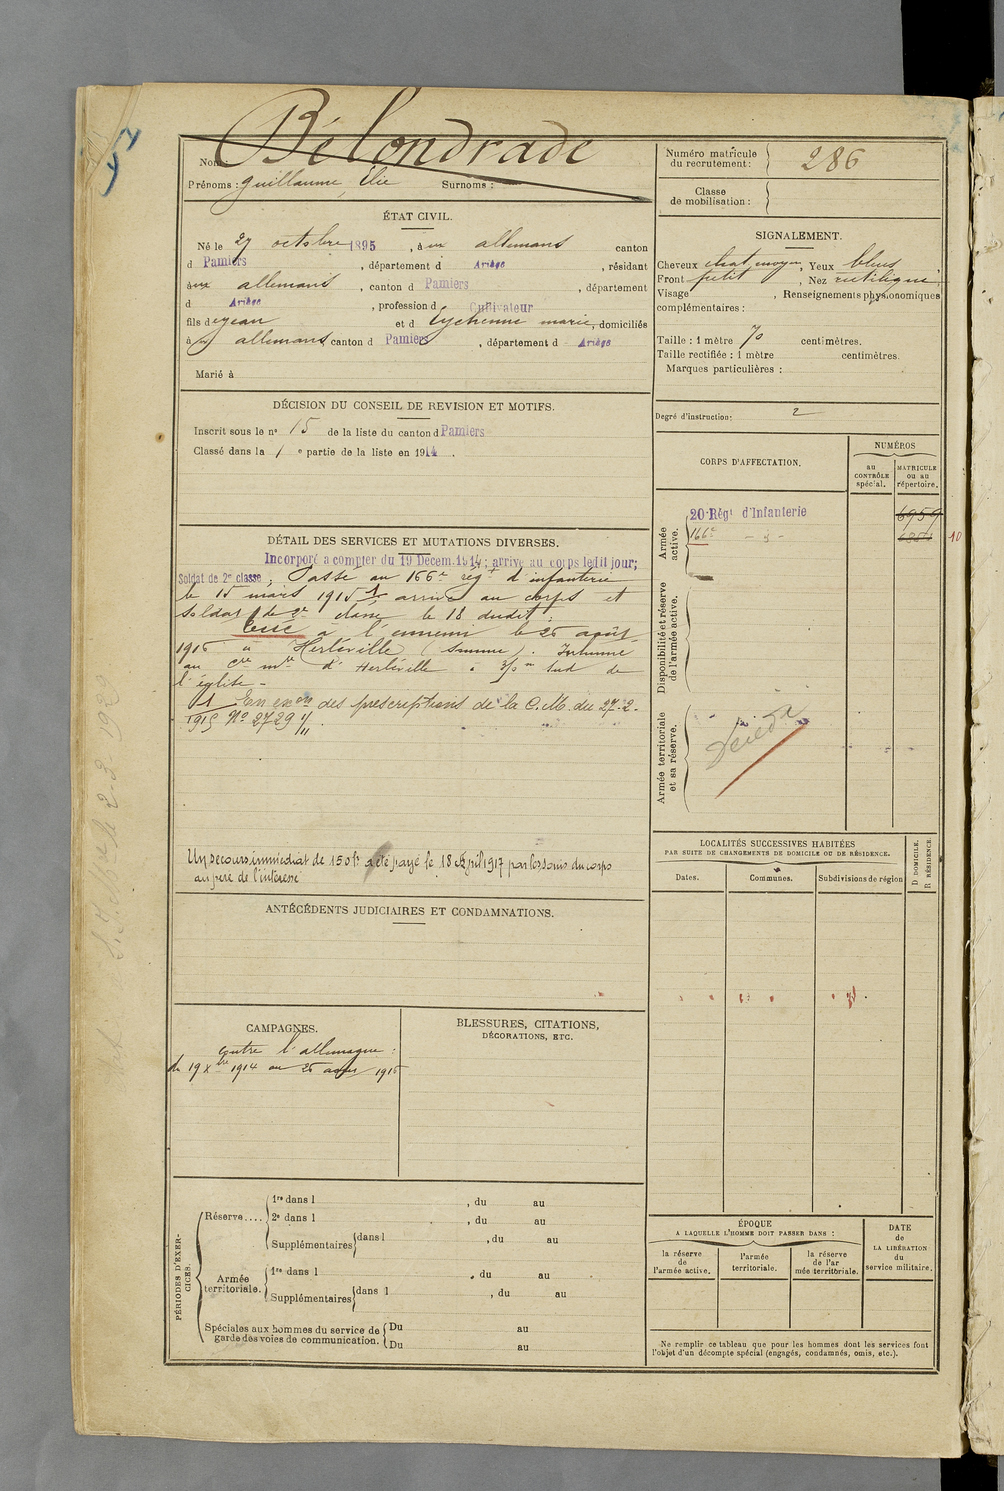 Nom : Bélondrade
Prénoms : Guillaume, Élie Surnoms :
Numéro matricule du recrutement : 286
Classe de mobilisation :
ÉTAT CIVIL.
Né le 27 octobre 1895, à ux allemans canton
d Pamiers, département d Ariège, résidant
à ux allemans, canton d Pamiers, département
d Ariège, profession d Cultivateur
fils de Jean et d Eychenne marie, domiciliés
à allemans canton d Pamiers, département d Ariège
Marié à
SIGNALEMENT.
Cheveux chat moyen, Yeux bleus
Front petit, Nez rectiligne
Visage , Renseignements physionomiques
complémentaires :
Taille : 1 mètre 70 centimètres.
Taille rectifiée : 1 mètre centimètres.
Marques particulières :
Degré d'instruction : 2
DÉCISION DU CONSEIL DE REVISION ET MOTIFS.
Inscrit sous le n° 15 de la liste du canton d Pamiers
Classé dans la 1 e partie de la liste en 1914.
DÉTAIL DES SERVICES ET MUTATIONS DIVERSES.
Incorporé a compter du 19 Décem. 1914; arrivé au corps le dit jour;
Soldat de 2e classe; Passé au 166e régt d'infanterie
le 15 mars 1915 1 arrivé au corps et
soldat de 2e classe le 18 dudit.
Tué à l'ennemi le 26 août
1916 à Herléville (Somme). Inhumé
au cre mre d'Herléville à 3/0 m sud de
l'église -
1 En exon des prescriptions de la C.M. du 27-2-
1915 No 2729 1/11.
Un secours immédiat de 150f a été payé le 18 April 1917 par les soins du corps
au père de l'intéressé
CORPS D'AFFECTATION.
NUMÉROS
au CONTRÔLE spécial.
MATRICULE ou au répertoire.
Armée active.
20 Régt d'Infanterie 6959
166e - d - 10
Disponibilité et réserve de l'armée active.
Armée territoriale et sa réserve.
LOCALITÉS SUCCESSIVES HABITÉES
PAR SUITE DE CHANGEMENTS DE DOMICILE OU DE RÉSIDENCE.
Dates. Communes. Subdivisions de région
D. DOMICILE. R. RÉSIDENCE.
ANTÉCÉDENTS JUDICIAIRES ET CONDAMNATIONS.
CAMPAGNES.
contre l'allemagne :
du 19 Xbre 1914 au 26 août 1916
BLESSURES, CITATIONS,
DÉCORATIONS, ETC.
PÉRIODES D'EXERCICES.
Réserve....
1re dans l , du au
2e dans l , du au
Supplémentaires dans l , du au
Armée territoriale.
1re dans l , du au
Supplémentaires dans l , du au
Spéciales aux hommes du service de garde des voies de communication.
Du au
Du au
ÉPOQUE
A LAQUELLE L'HOMME DOIT PASSER DANS :
la réserve de l'armée active.
l'armée territoriale.
la réserve de l'armée territoriale.
DATE de LA LIBÉRATION du service militaire.
Ne remplir ce tableau que pour les hommes dont les services font
l'objet d'un décompte spécial (engagés, condamnés, omis, etc.).